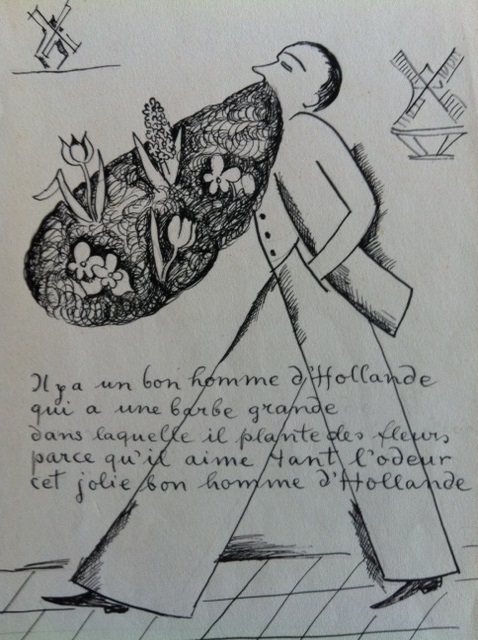 Il y a un bon homme d'Hollande
qui a une barbe grande
dans laquelle il plante des fleurs
parce qu'il aime tant l'odeur
cet jolie bon homme d'Hollande